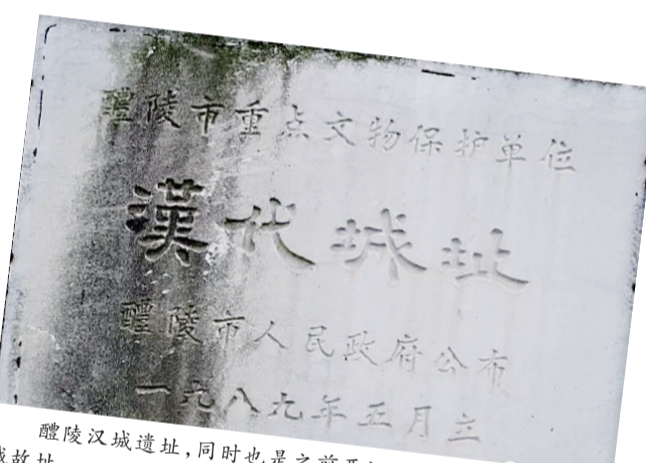 醴陵市重点文物保护单位
漢代城址
醴陵市人民政府公布
一九八九年五月立
醴陵汉城遗址,同时也是之前
故址